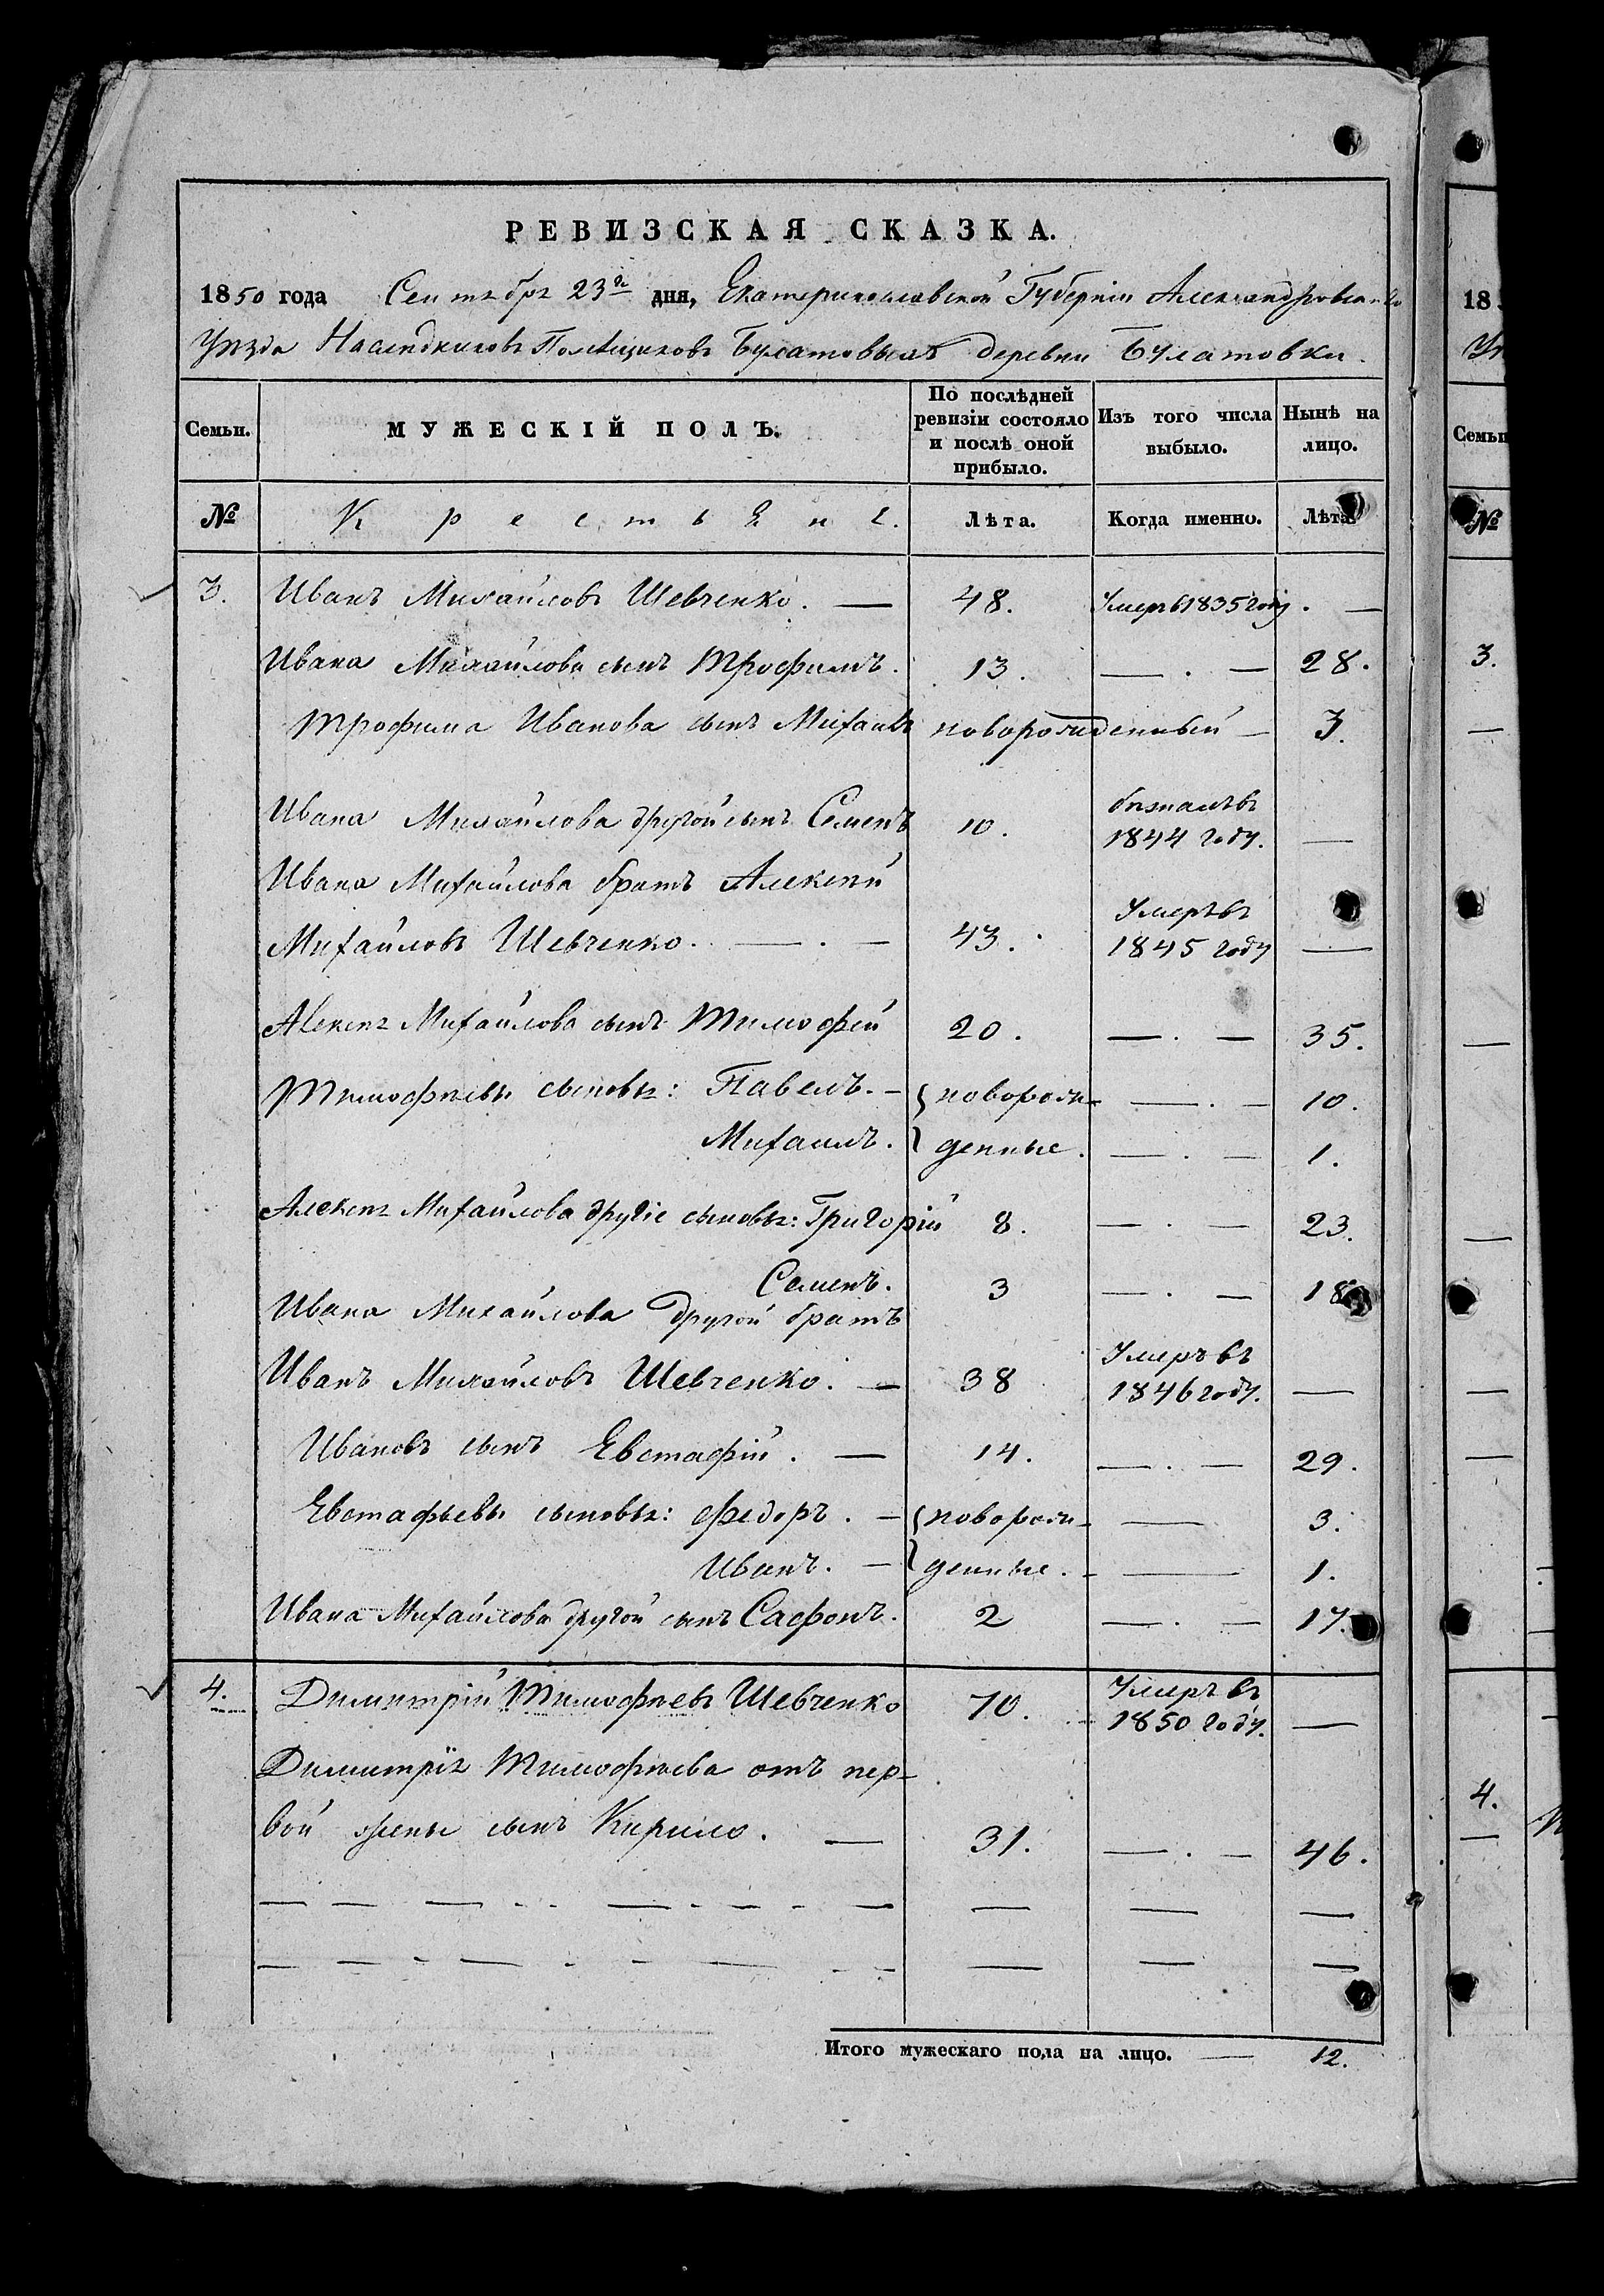 РЕВИЗСКАЯ СКАЗКА.
1850 года Сентября 23го дня, Екатеринославской Губерніи Александровскаго
Уѣзда Наслѣдниковъ Помѣщиковъ Булатовыхъ деревни Булатовки.
Семьи. МУЖЕСКІЙ ПОЛЪ. По послѣдней ревизіи состояло и послѣ оной прибыло. Изъ того числа выбыло. Нынѣ на лицо.
№ Крестьяне. Лѣта. Когда именно. Лѣта.
3. Иванъ Михайловъ Шевченко. — 48. Умеръ в 1835 году. —
Ивана Михайлова сынъ Трофимъ. 13. — . — 28.
Трофима Иванова сынъ Михаилъ новорожденный — 3.
Ивана Михайлова другой сынъ Семенъ 10. бѣжалъ въ 1844 году. —
Ивана Михайлова братъ Алексѣй
Михайловъ Шевченко. — . — 43. Умеръ въ 1845 году —
Алексѣя Михайлова сынъ Тимофей 20. — . — 35.
Тимофѣевы сыновья: Павелъ. — новорож- — . — 10.
Михаилъ. денные. — . — 1.
Алексѣя Михайлова другіе сыновья: Григорій 8. — . — 23.
Семенъ. 3 — . — 18
Ивана Михайлова другой братъ
Иванъ Михайловъ Шевченко. — 38 Умеръ въ 1846 году. —
Ивановъ сынъ Евстафій. — 14. — . — 29.
Евстафьевы сыновья: Федоръ. — новорож- — 3.
Иванъ. — денные. — 1.
Ивана Михайлова другой сынъ Сафонъ. 2 — . — 17.
4. Димитрій Тимофѣевъ Шевченко 70. Умеръ въ 1850 году. —
Димитрія Тимофѣева отъ пер-
вой жены сынъ Кирило. — 31. — . — 46.
Итого мужескаго пола на лицо. — 12.
18
Уѣ
Семьи
№
3.
4.